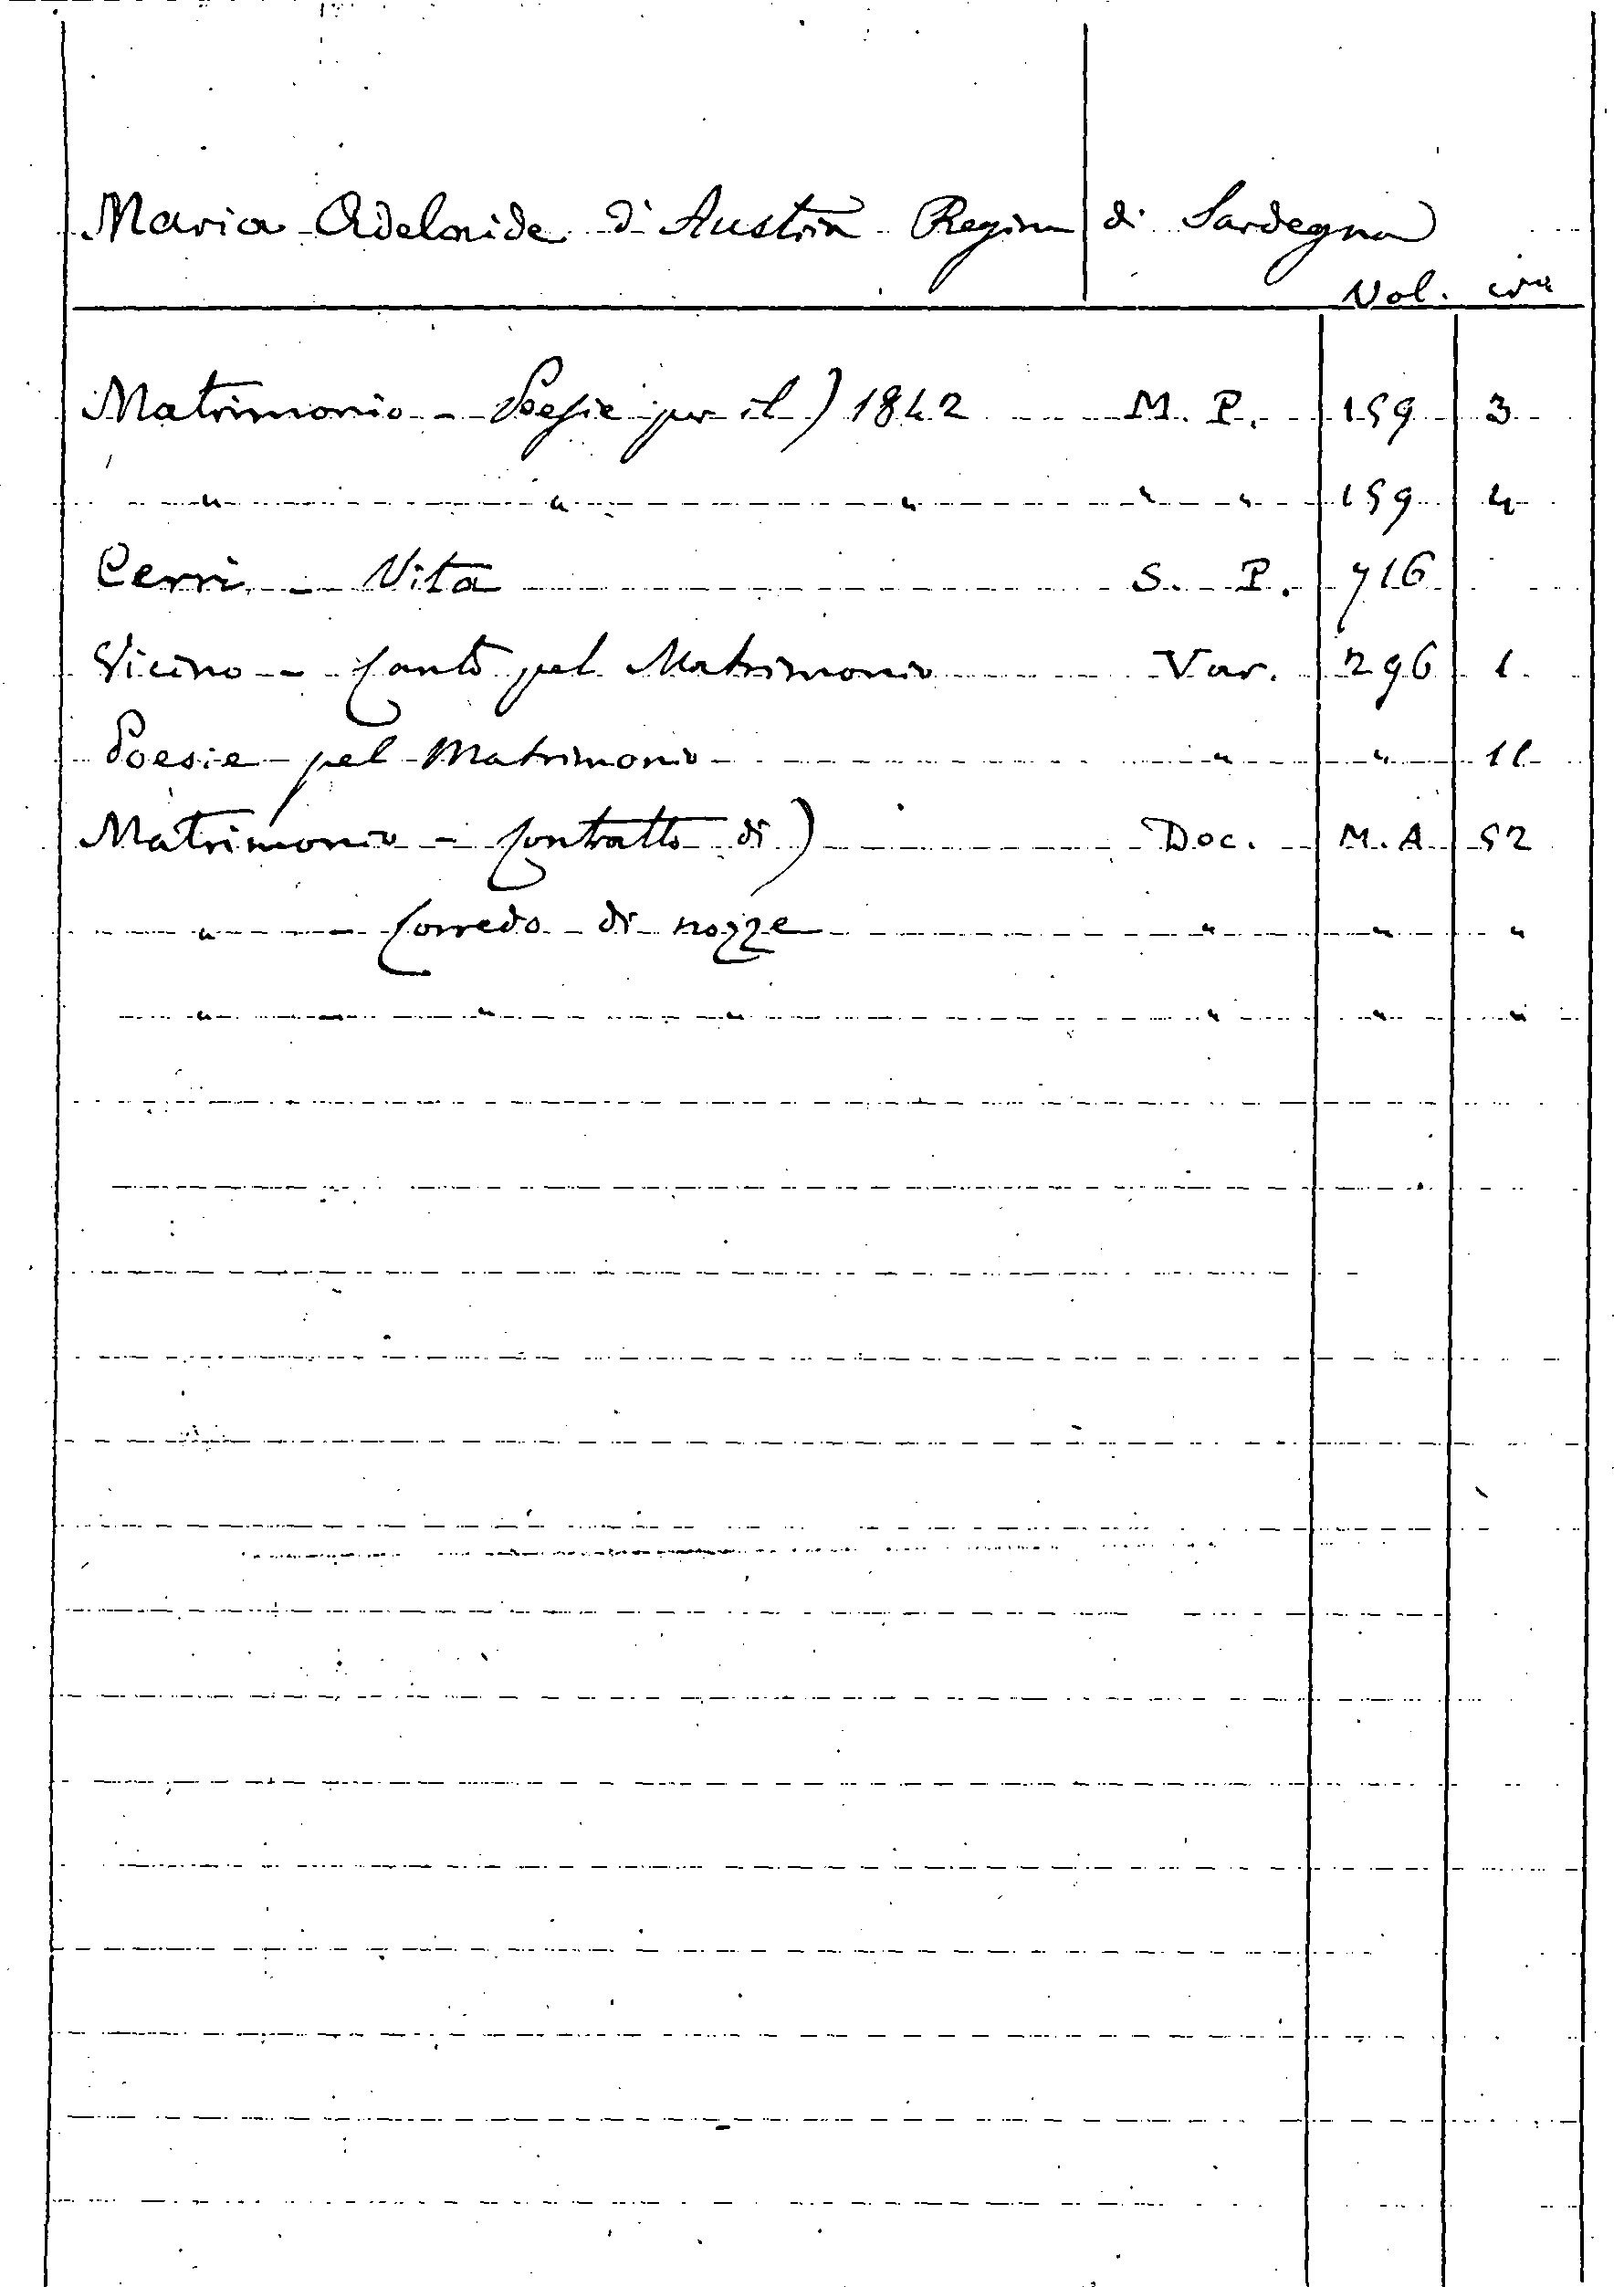 Maria Adelaide d'Austria Regina di Sardegna
Vol.
Matrimonio - Poesie per il) 1842 M. P. 159 3
" " " " " 159 4
Cerri - Vita S. P. 716
Vicino - Canto pel Matrimonio Var. 296 1
Poesie pel Matrimonio " " 11
Matrimonio - Contratto di) Doc. M.A 52
" - Corredo di nozze " " "
" - " " " " "